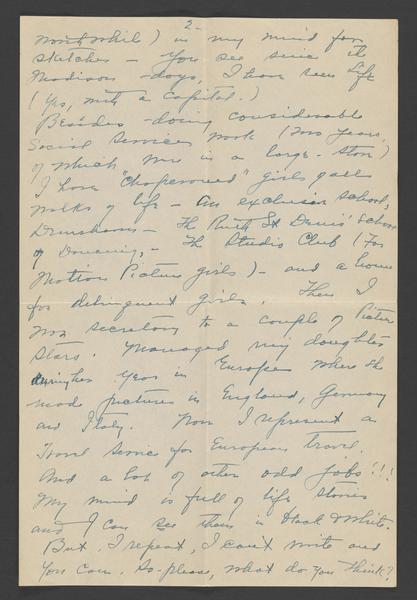 2-
worth while) in my mind for
sketches - You see since the
Madison days, I have seen Life
(Yes, with a capital.)
Besides doing considerable
Social Service work (two years,
of which was in a large store)
I have "chaperoned" girls of all
walks of life - An exclusive school,
Denishawn - The Ruth St Denis' School
of Dancing, - The Studio Club (For
Motion Picture girls) - and a home
for delinquent girls. Then I
was secretary to a couple of Picture
Stars. Managed my daughter
during her year in Europe where she
made pictures in England, Germany
and Italy. Now I represent a
Travel Service for European travel.
And a lot of other odd jobs!!!
My mind is full of life stories
and I can see them in Black & White.
But, I repeat, I can't write and
You can. So-please, what do you think?